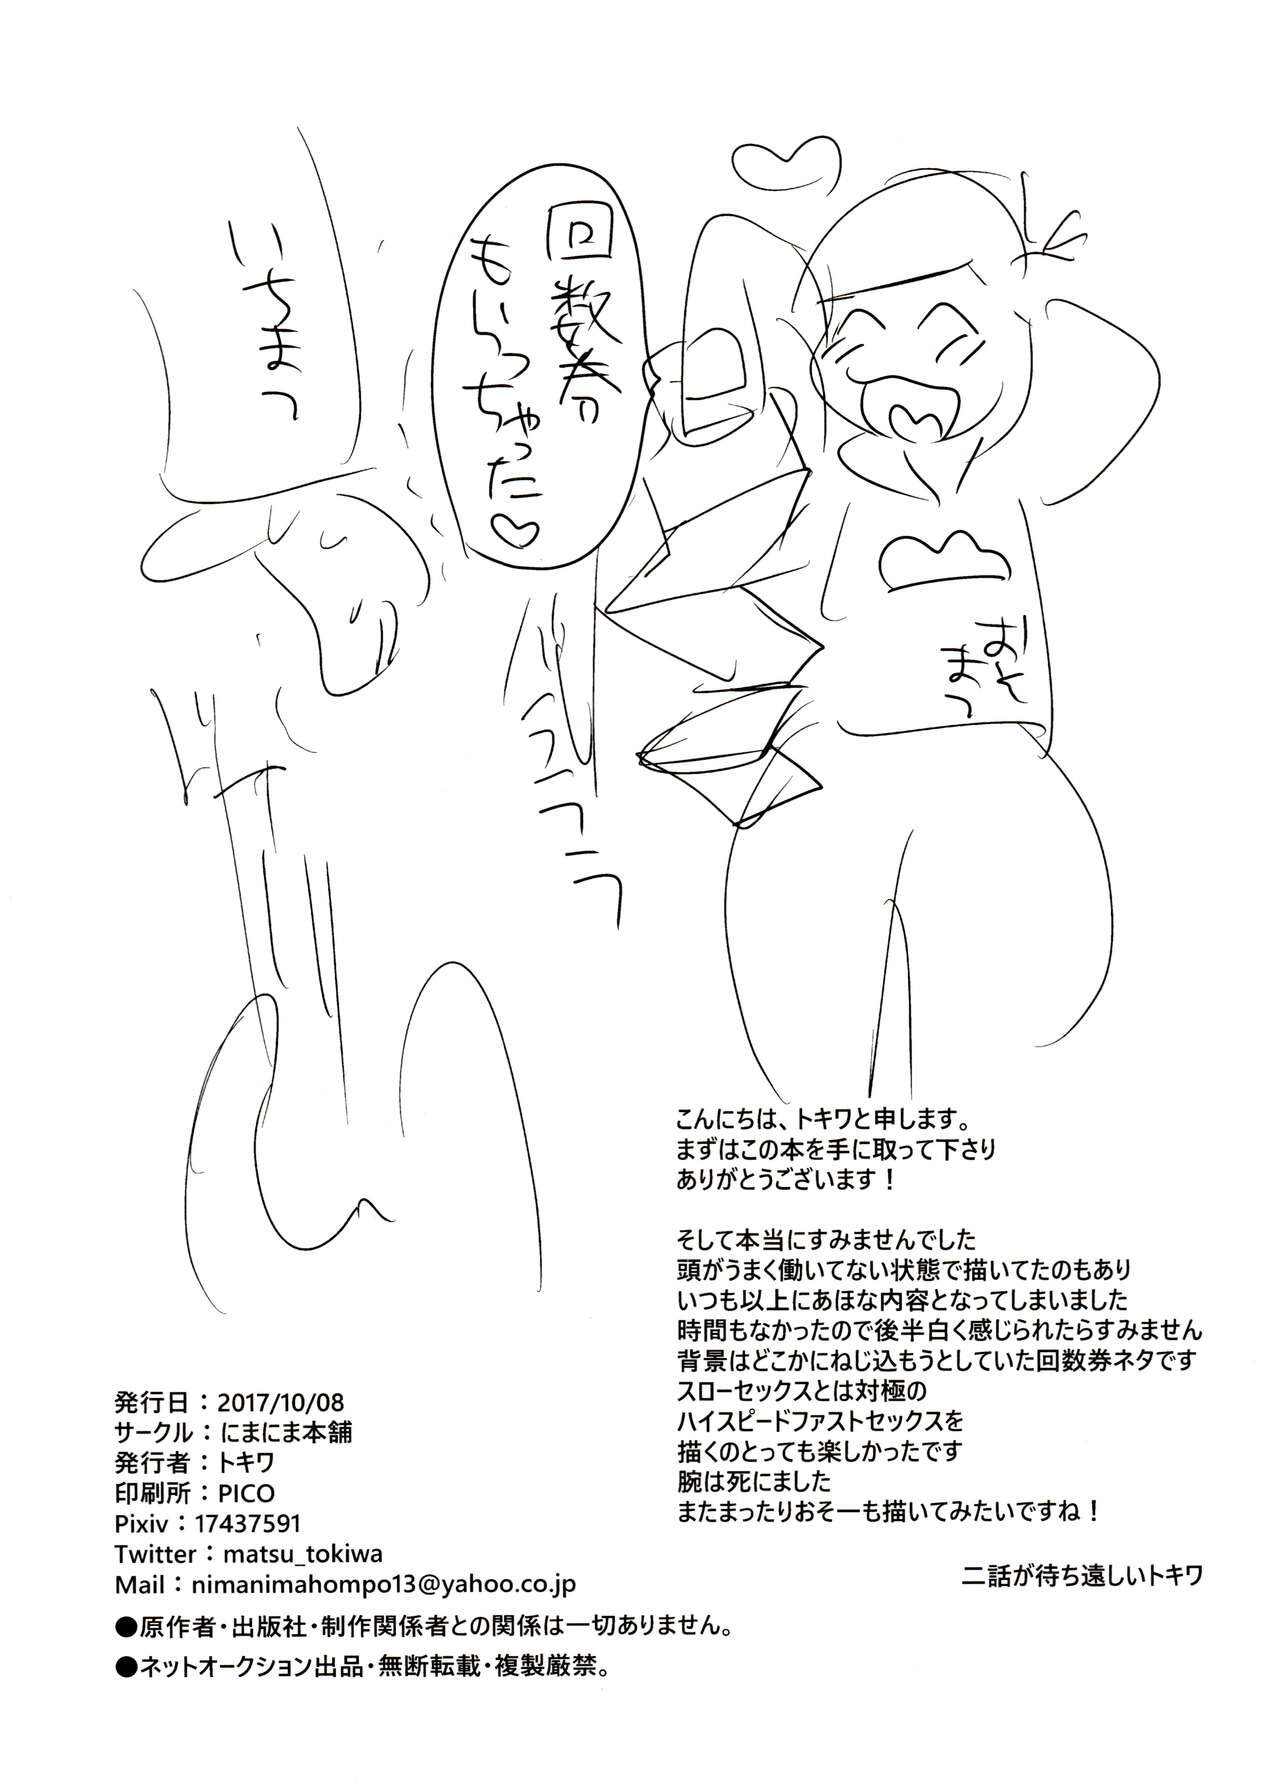 回数券
もらっちゃった♡
いちまつ
おそ
まつ
バラララララ
こんにちは、トキワと申します。
まずはこの本を手に取って下さり
ありがとうございます！
そして本当にすみませんでした
頭がうまく働いてない状態で描いてたのもあり
いつも以上にあほな内容となってしまいました
時間もなかったので後半白く感じられたらすみません
背景はどこかにねじ込もうとしていた回数券ネタです
スローセックスとは対極の
ハイスピードファストセックスを
描くのとっても楽しかったです
腕は死にました
またまったりおそ一も描いてみたいですね！
二話が待ち遠しいトキワ
発行日：2017/10/08
サークル：にまにま本舗
発行者：トキワ
印刷所：PICO
Pixiv：17437591
Twitter：matsu_tokiwa
Mail：nimanimahompo13@yahoo.co.jp
●原作者・出版社・制作関係者との関係は一切ありません。
●ネットオークション出品・無断転載・複製厳禁。